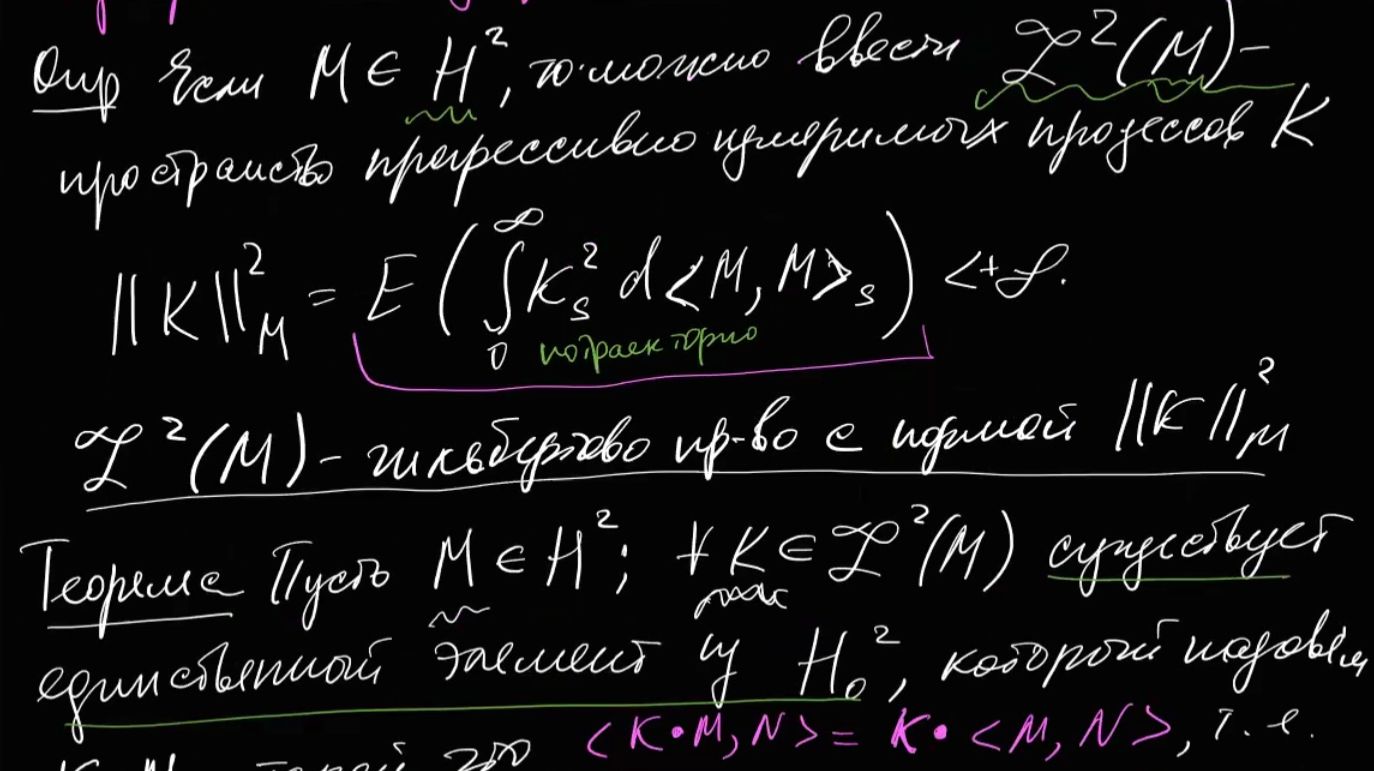 Опр Если M ∈ H², то можно ввести ℒ²(M) –
пространство прогрессивно измеримых процессов K
||K||²_M = E( ∫₀^∞ K_s² d<M, M>_s ) < +∞.
потраекторно
ℒ²(M) – гильбертово пр-во с нормой ||K||²_M
Теорема Пусть M ∈ H²; ∀ K ∈ ℒ²(M) существует
единственный элемент из H₀², который назовём
<K•M, N> = K•<M, N>, т.е.